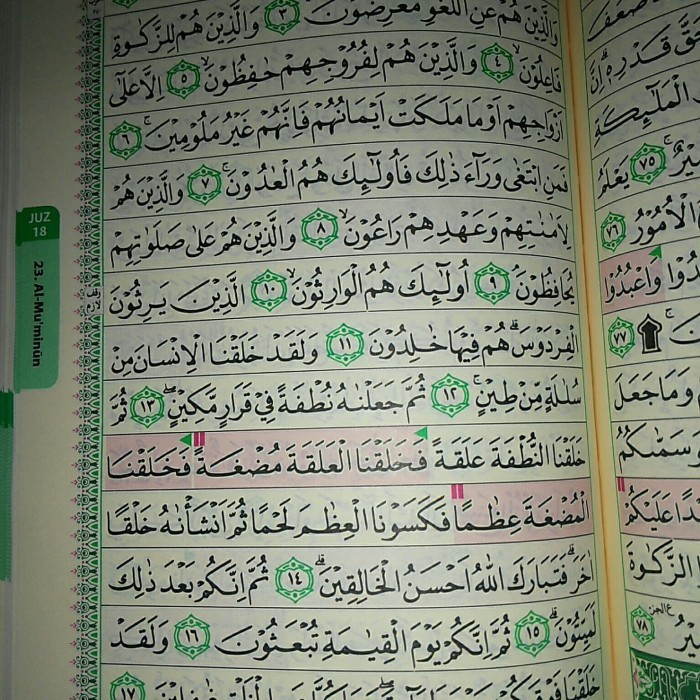 وَالَّذِيْنَ هُمْ عَنِ اللَّغْوِ مُعْرِضُوْنَ ۙ ٣ وَالَّذِيْنَ هُمْ لِلزَّكٰوةِ
فَاعِلُوْنَ ۙ ٤ وَالَّذِيْنَ هُمْ لِفُرُوْجِهِمْ حٰفِظُوْنَ ۙ ٥ اِلَّا عَلٰٓى
اَزْوَاجِهِمْ اَوْ مَا مَلَكَتْ اَيْمَانُهُمْ فَاِنَّهُمْ غَيْرُ مَلُوْمِيْنَ ۚ ٦
فَمَنِ ابْتَغٰى وَرَاۤءَ ذٰلِكَ فَاُولٰۤىِٕكَ هُمُ الْعٰدُوْنَ ۚ ٧ وَالَّذِيْنَ هُمْ
لِاَمٰنٰتِهِمْ وَعَهْدِهِمْ رَاعُوْنَ ۙ ٨ وَالَّذِيْنَ هُمْ عَلٰى صَلَوٰتِهِمْ
يُحَافِظُوْنَ ۘ ٩ اُولٰۤىِٕكَ هُمُ الْوَارِثُوْنَ ۙ ١٠ الَّذِيْنَ يَرِثُوْنَ
الْفِرْدَوْسَۗ هُمْ فِيْهَا خٰلِدُوْنَ ١١ وَلَقَدْ خَلَقْنَا الْاِنْسَانَ مِنْ
سُلٰلَةٍ مِّنْ طِيْنٍ ۚ ١٢ ثُمَّ جَعَلْنٰهُ نُطْفَةً فِيْ قَرَارٍ مَّكِيْنٍ ۖ ١٣ ثُمَّ
خَلَقْنَا النُّطْفَةَ عَلَقَةً فَخَلَقْنَا الْعَلَقَةَ مُضْغَةً فَخَلَقْنَا
الْمُضْغَةَ عِظٰمًا فَكَسَوْنَا الْعِظٰمَ لَحْمًا ثُمَّ اَنْشَأْنٰهُ خَلْقًا
اٰخَرَۗ فَتَبَارَكَ اللّٰهُ اَحْسَنُ الْخَالِقِيْنَۗ ١٤ ثُمَّ اِنَّكُمْ بَعْدَ ذٰلِكَ
لَمَيِّتُوْنَ ۗ ١٥ ثُمَّ اِنَّكُمْ يَوْمَ الْقِيٰمَةِ تُبْعَثُوْنَ ١٦ وَلَقَدْ
١٧
JUZ
18
23. Al-Mu'minūn
قَدْرِهٖ اِنَّ
الْمَلٰۤىِٕكَةِ
٧٥ يَعْلَمُ
الْاُمُوْرُ ٧٦
وَاعْبُدُوْا
٧٧
وَمَا جَعَلَ
سَمّٰىكُمُ
عَلَيْكُمْ
الزَّكٰوةَ
٧٨